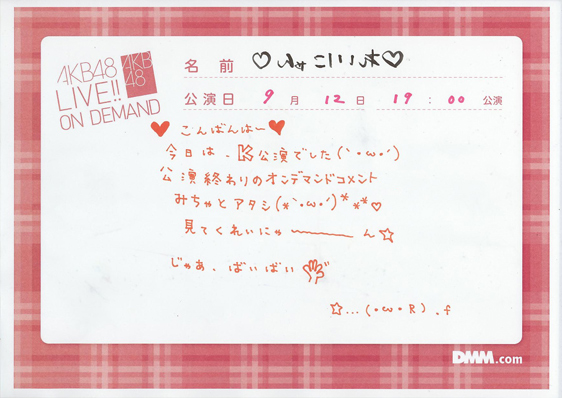 AKB48
LIVE!!
ON DEMAND
AKB
48
名 前
公演日 9月 12日 19:00 公演
♥こんばんは〜♥
今日は、K公演でした(`・ω・´)
公演終わりのオンデマンドコメント
みちゃとアタシ(*`・ω・´)***♡
見てくれいにゃ〜〜ん☆
じゃあ、ばいばい
☆...(・ω・R).f
DMM.com